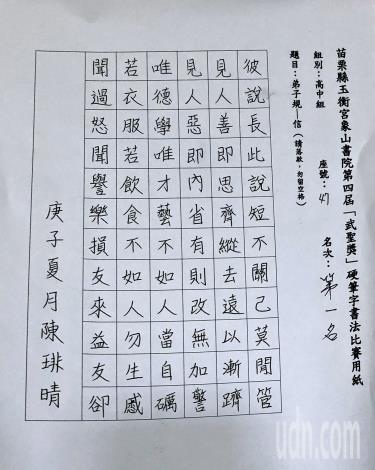 苗栗縣玉衡宮象山書院第四屆「武聖獎」硬筆字書法比賽用紙
組別：高中組 座號：47 名次：第一名
題目：弟子規—信（請落款，勿留空格）
彼說長此說短不關己莫閒管
見人善即思齊縱去遠以漸躋
見人惡即內省有則改無加警
唯德學唯才藝不如人當自礪
若衣服若飲食不如人勿生慼
聞過怒聞譽樂損友來益友卻
庚子夏月陳琲晴
udn.com